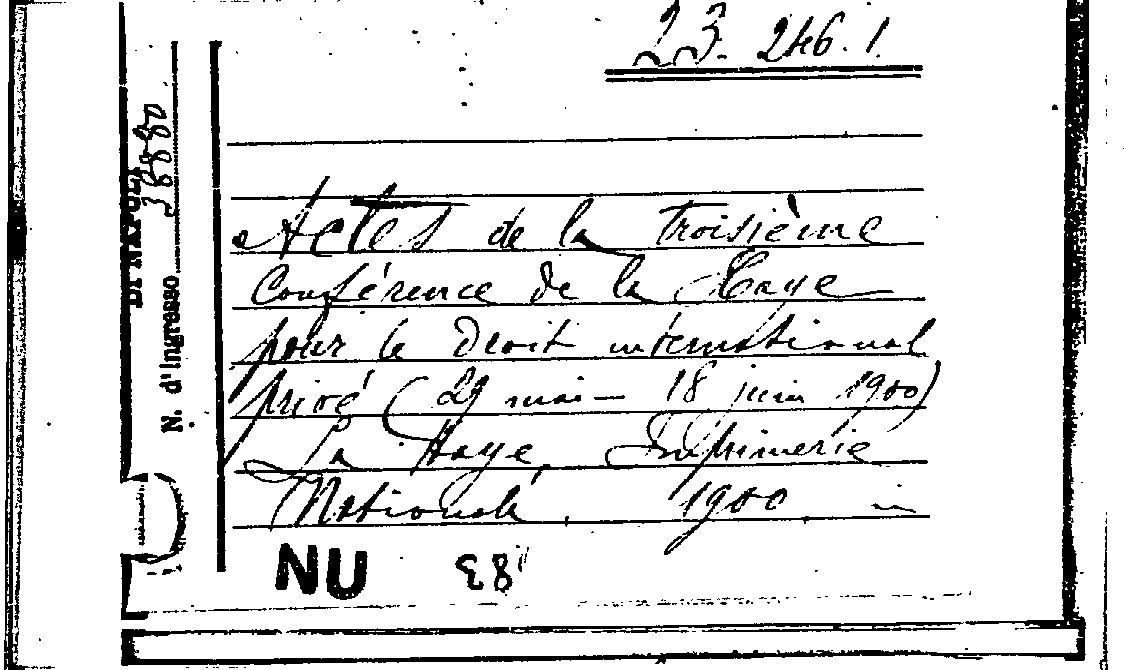 23. 246. 1.
DI NAPOLI
N. d'Ingresso 38880
Actes de la troisième
Conférence de la Haye
pour le Droit international
privé (29 mai — 18 juin 1900)
La Haye, Imprimerie
Nationale, 1900. in
NU 38